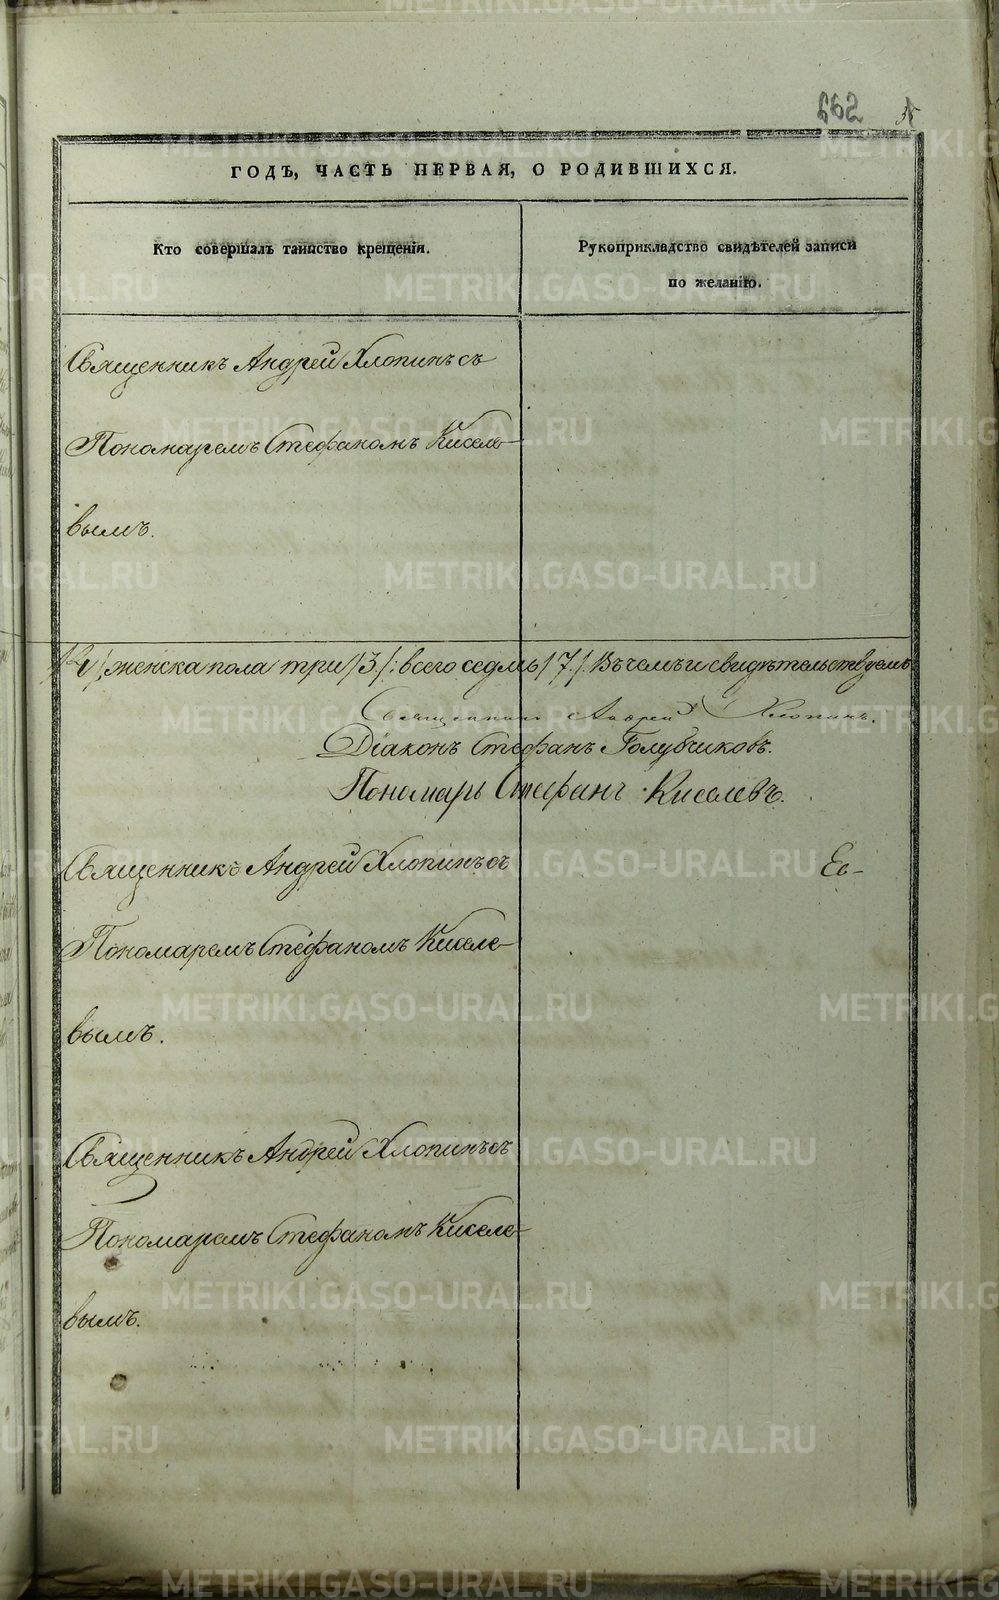 662
ГОДЪ, ЧАСТЬ ПЕРВАЯ, О РОДИВШИХСЯ.
Кто совершалъ таинство крещенія.
Рукоприкладство свидѣтелей записи
по желанію.
Священникъ Андрей Хлопинъ съ
Пономаремъ Стефаномъ Киселе-
вымъ.
/4/, женска пола три /3/: всего седмь /7/. Въ чемъ и свидѣтельствуемъ
Священникъ Андрей Хлопинъ.
Діаконъ Стефанъ Голубчиковъ.
Пономарь Стефанъ Киселевъ.
Священникъ Андрей Хлопинъ съ
Ев-
Пономаремъ Стефаномъ Киселе-
вымъ.
Священникъ Андрей Хлопинъ съ
Пономаремъ Стефаномъ Киселе-
вымъ.
METRIKI.GASO-URAL.RU